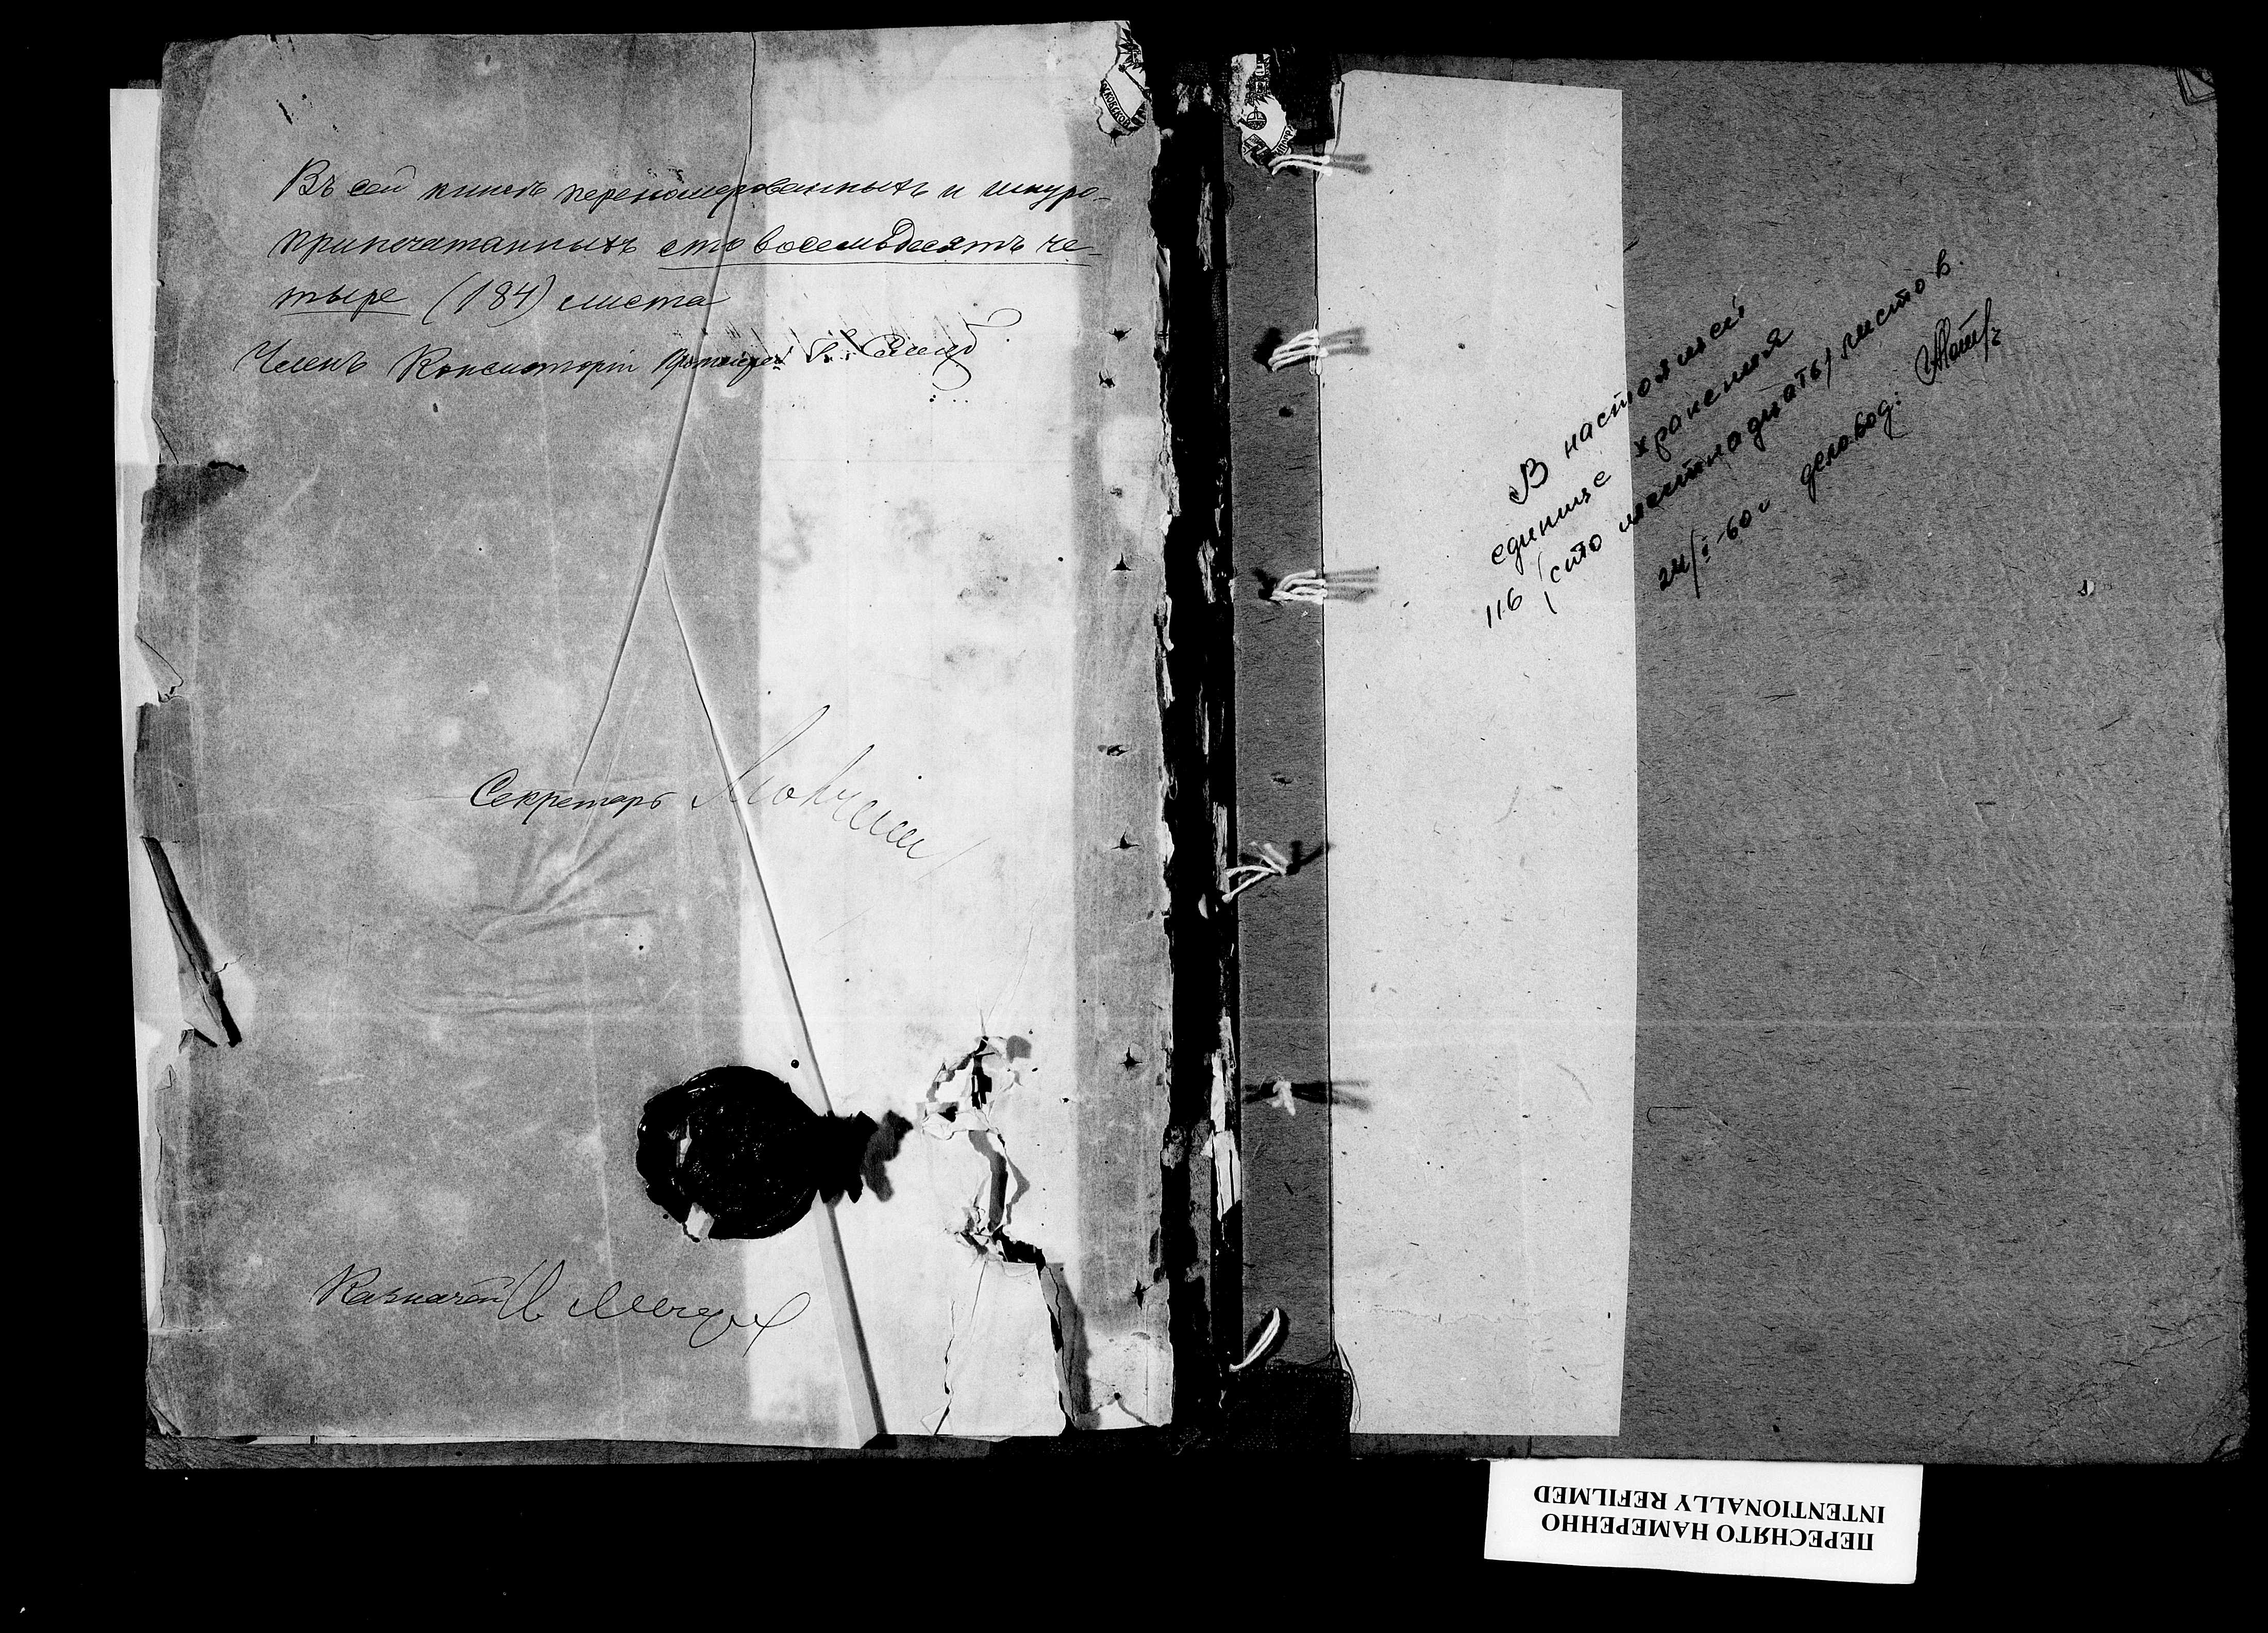 Въ сей книгѣ перенумерованныхъ и шнуро-
припечатанныхъ сто восемьдесятъ че-
тыре (184) листа
Членъ Консисторіи Протоіерей
Секретарь
Казначей
МОСКОВСКОЙ
В настоящей
единице хранения
116 (сто шестнадцать) листов.
24/I-60 г. деловод:
ПЕРЕСНЯТО НАМЕРЕННО
INTENTIONALLY REFILMED